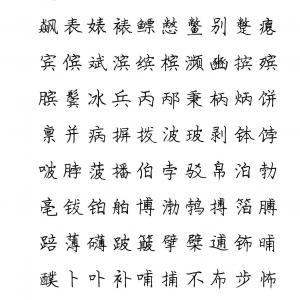 飙表婊裱鳔憋鳖别蹩瘪
宾傧斌滨缤槟濒豳摈殡
膑鬓冰兵丙邴秉柄炳饼
禀并病摒拨波玻剥钵饽
啵脖菠播伯孛驳帛泊勃
亳钹铂舶博渤鹁搏箔膊
踣薄礴跛簸擘檗逋钸晡
醭卜卟补哺捕不布步怖